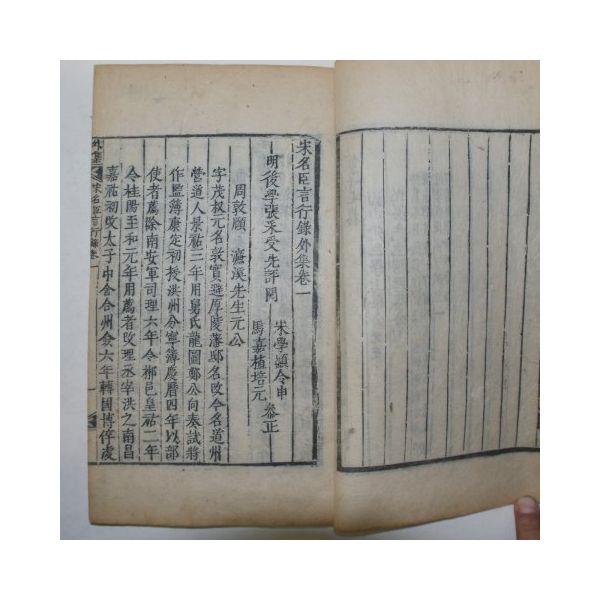 宋名臣言行錄外集卷一
明後學張采受先評閱
宋學顯令申
馬嘉植培元
參正
周敦頤 濂溪先生元公
字茂叔元名敦實避厚陵藩邸名改今名道州
營道人景祐三年用舅氏龍圖鄭公向奏試將
作監簿康定初授洪州分寧簿慶曆四年以部
使者薦除南安軍司理六年令郴邑皇祐二年
令桂陽至和元年用薦者改理丞宰洪之南昌
嘉祐初改太子中舍合州僉六年轉國博倅虔
外集 宋名臣言行錄卷一